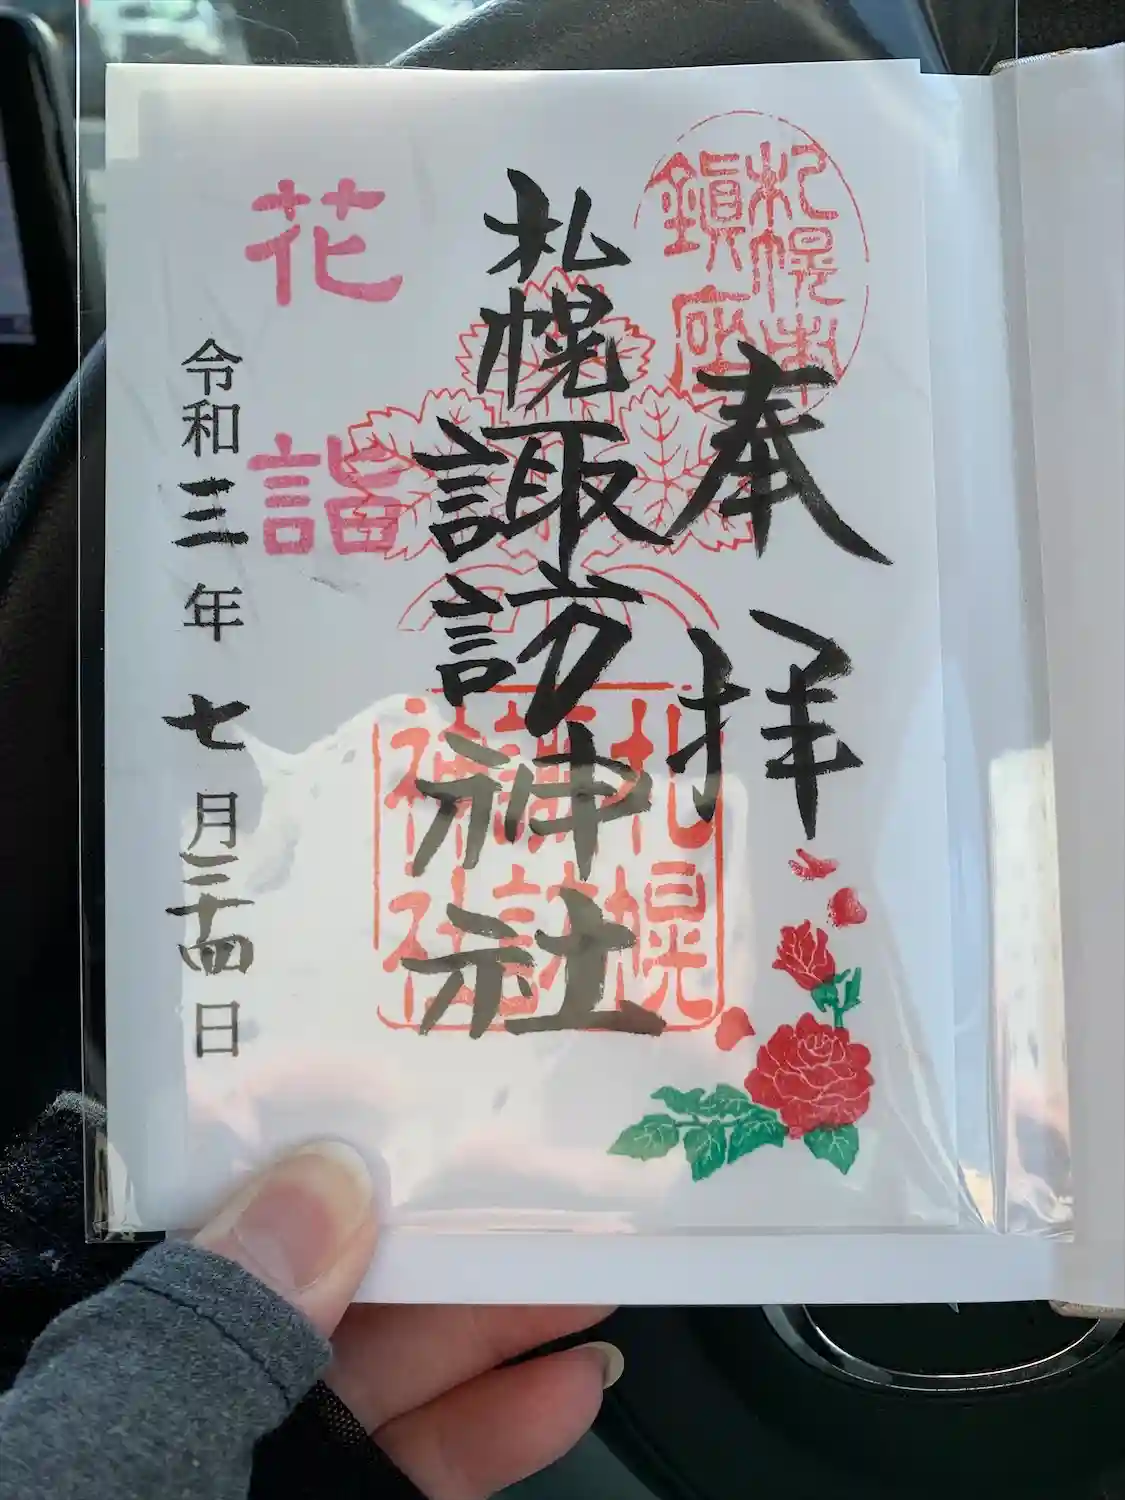 札幌市
鎮座
奉拝
札幌諏訪神社
札幌
諏訪
神社
花詣
令和三年七月二十四日